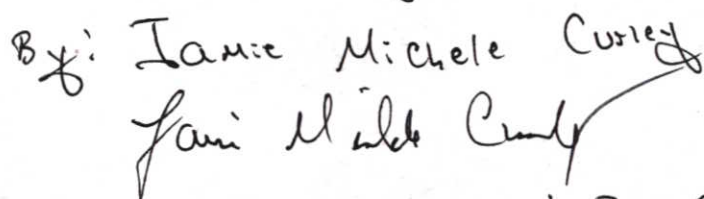 By: Jamie Michele Curley
Jamie Michele Curley